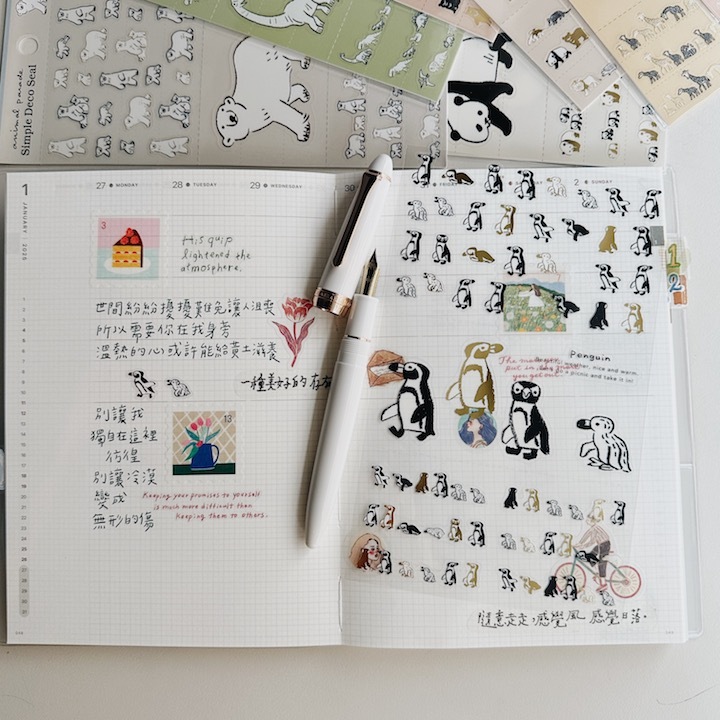 animal parade
Simple Deco Seal
1
JANUARY
2025
27 MONDAY
28 TUESDAY
29 WEDNESDAY
30
FRIDAY
2 SUNDAY
3
His quip
lightened the
atmosphere.
世間紛紛擾擾難免讓人沮喪
所以需要你在我身旁
溫熱的心或許能給黃土滋養
一種美好的存在
別讓我
獨自在這裡
彷徨
別讓冷漠
變成
無形的傷
13
Keeping your promises to yourself
is much more difficult than
keeping them to others.
1
2
Penguin
weather, nice and warm.
on a picnic and take it in!
The more you
put in
you get out.
隨意走走,感覺風 感覺日落。